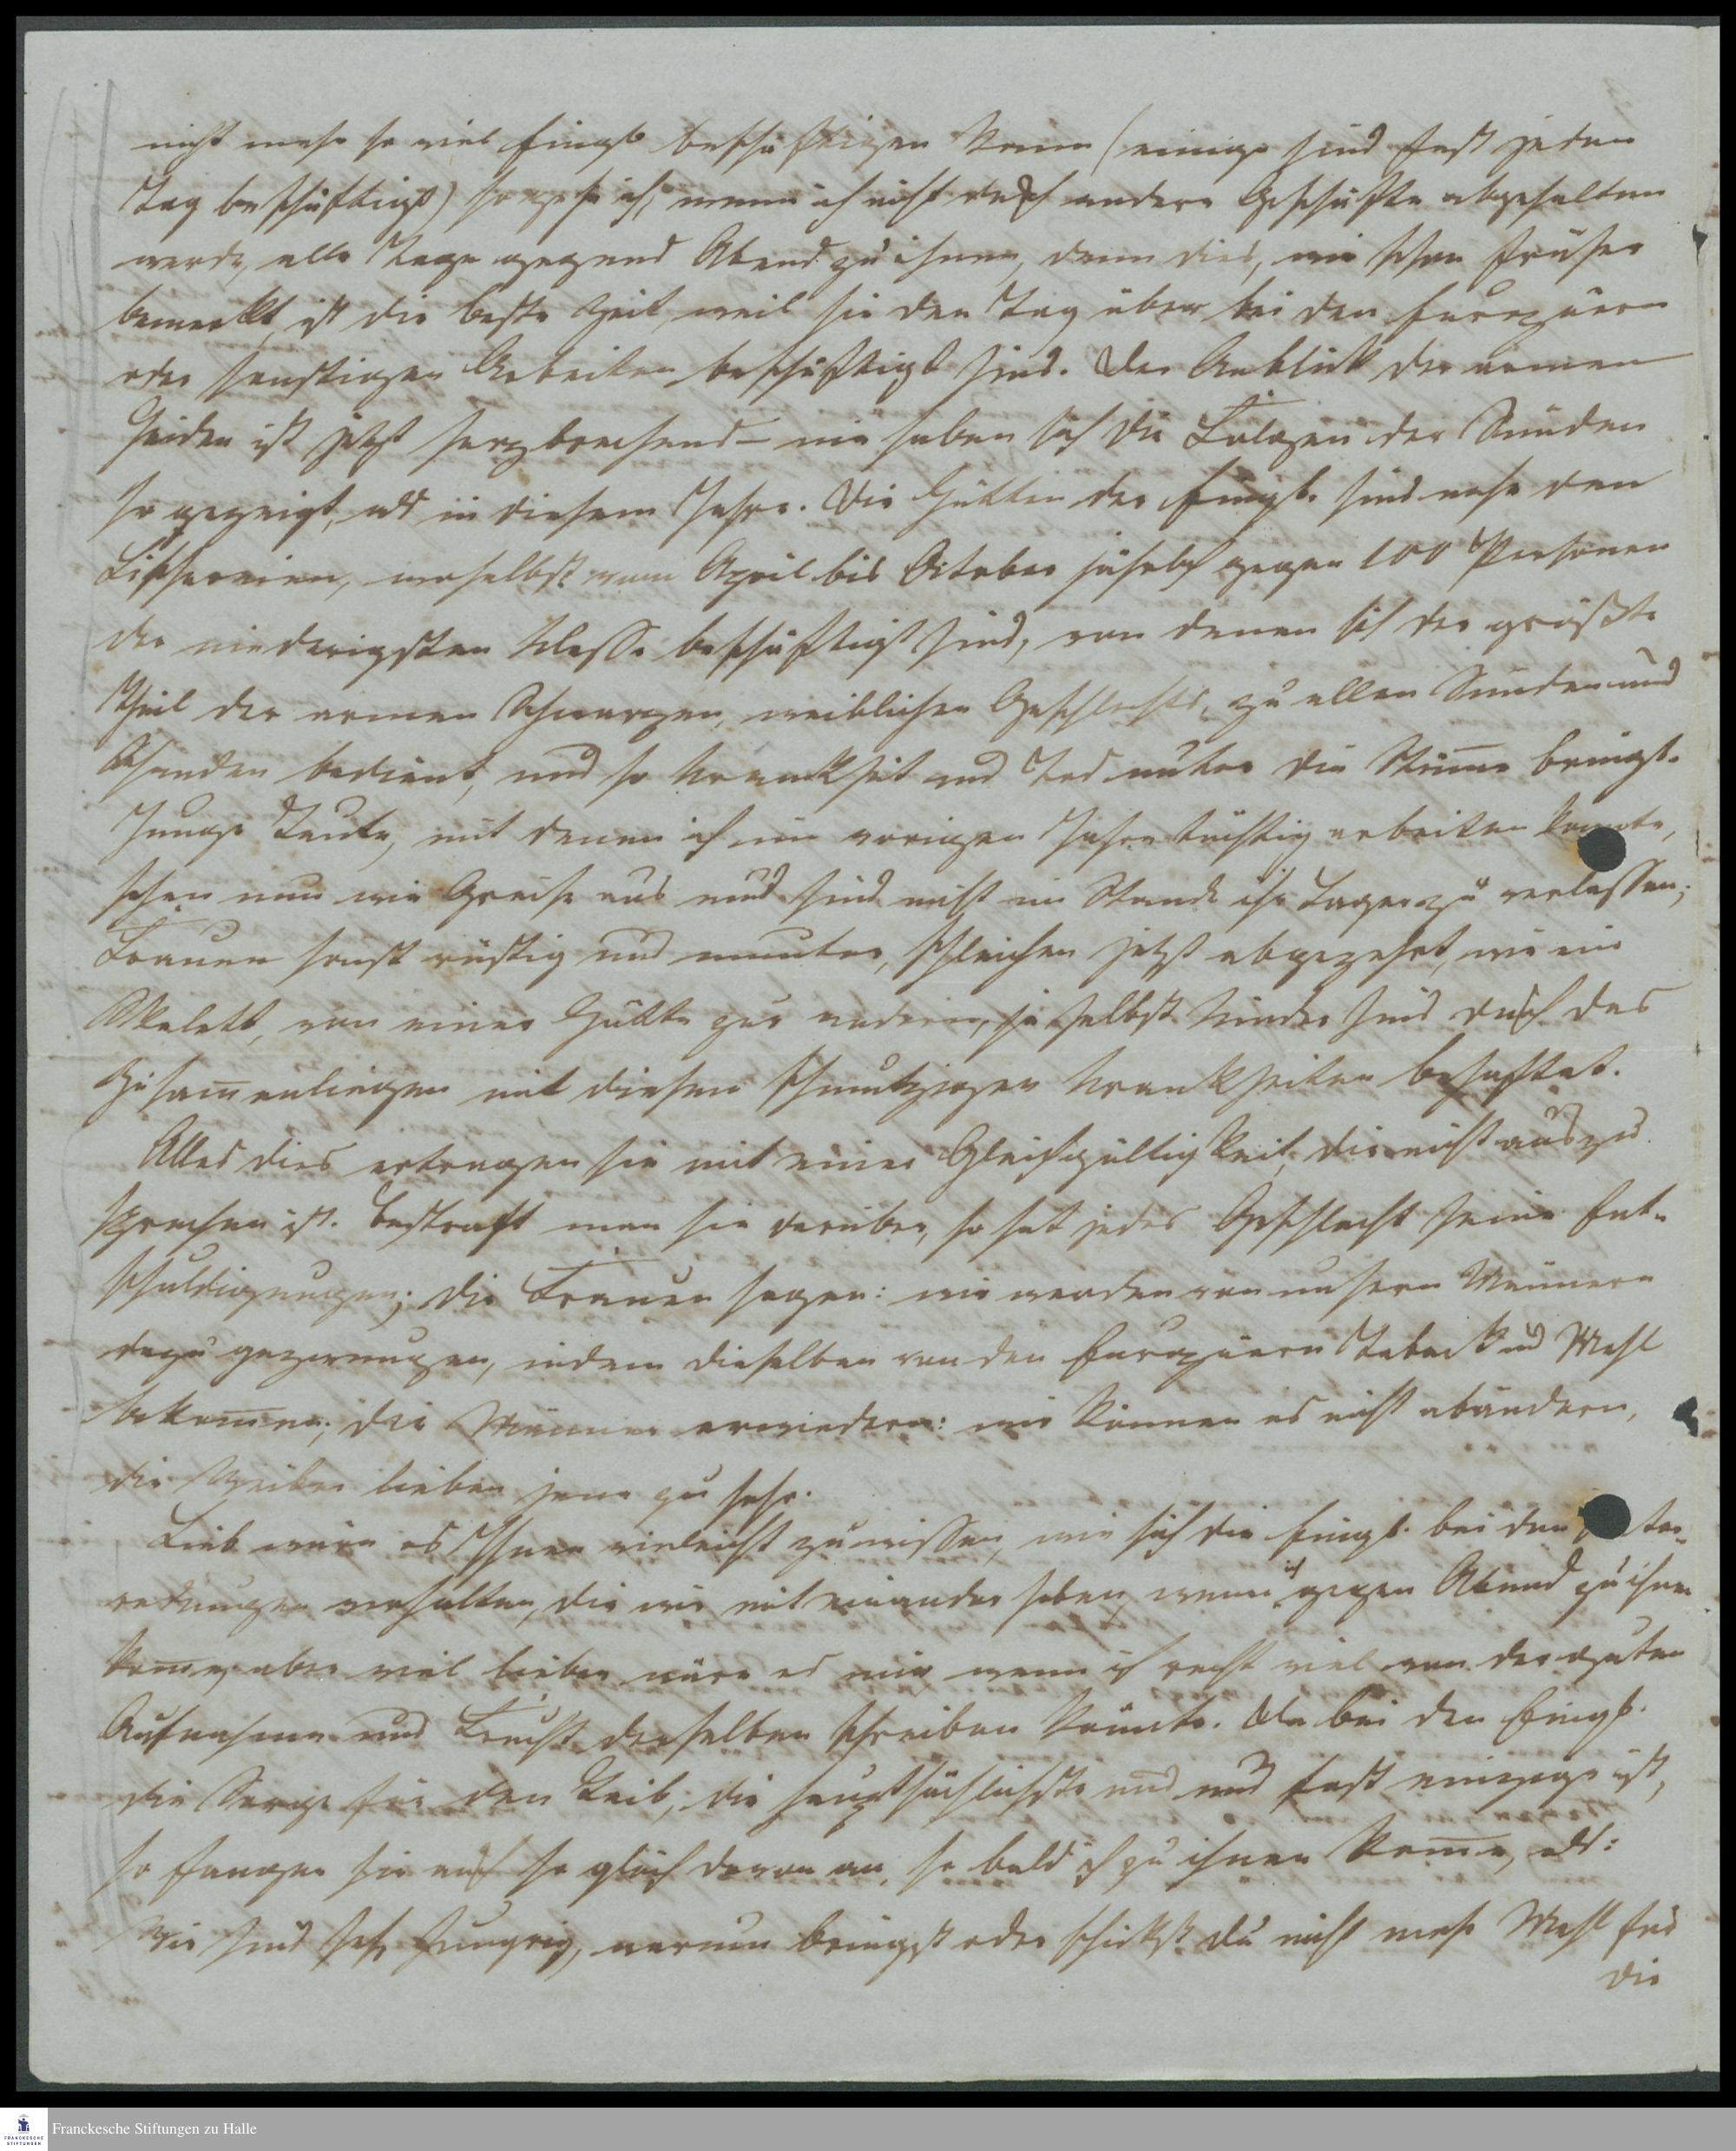 nicht mehr so viel Eingb. beschäftigen kann (einige sind fast jeden
Tag beschäftigt) so gehe ich, wenn ich nicht durch andere Geschäfte abgehalten
werde, alle Tage gegend Abend zu ihnen, denn dies, wie schon früher
bemerkt, ist die beste Zeit, weil sie den Tag über bei den Europäern
oder sonstigen Arbeiten beschäftigt sind. Der Anblick der armen
Heiden ist jetzt herzbrechend – nie haben sich die Folgen der Sünden
so gezeigt, als in diesem Jahre. Die Hütten der Eingb. sind nahe den
Fischereien, woselbst vom April bis October jährlich gegen 100 Personen
der niedrigsten Klasse beschäftigt sind, von denen sich der größte
Theil der armen Schwarzen, weiblichen Geschlechts, zu allen Sünden und
Schanden bedient, und so Krankheit und Tod unter die Stäme bringt.
Junge Leute, mit denen ich im vorigen Jahre tüchtig arbeiten konnte,
sehen nun wie Greise aus und sind nicht im Stande ihr Lager zu verlassen;
Frauen sonst rüstig und munter, schleichen jetzt abgezehrt, wie ein
Skelett, von einer Hütte zur anderen, ja selbst Kinder sind durch das
Zusam̄enliegen mit diesen schmutzigen Krankheiten behaftet.
Alles dies ertragen sie mit einer Gleichgültigkeit, die nicht auszu
sprechen ist. Bestraft man sie darüber, so hat jedes Geschlecht seine Ent-
schuldigungen; die Frauen sagen: wir werden von unsern Männern
dazu gezwungen, indem dieselben von den Europäern Taback und Mehl
bekom̄en; die Männer erwiedern: wir können es nicht abändern,
die Weiber lieben jene zu sehr.
Lieb wäre es Ihnen vieleicht zu wissen, wie sich die Eingb. bei den
redungen verhalten, die wir mit einander haben, wenn ich gegen Abend zu ihnen
kom̄e, aber viel lieber wäre es mir, wenn ich recht viel von der guten
Aufnahme und Frucht derselben schreiben könnte. Da bei den Eingb.
die Sorge für den Leib, die hauptsächlichste und und fast einzige ist,
so fangen sie auch so gleich davon an, so bald ich zu ihnen kom̄e, als:
Wir sind sehr hungrig, warum bringst oder schickst du nicht mehr Mehl für
die
Franckesche Stiftungen zu Halle
FRANCKESCHE
STIFTUNGEN